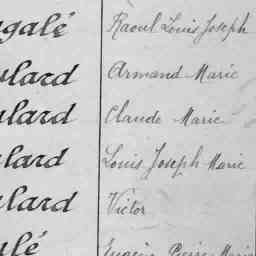 galé Raoul Louis Joseph
ulard Armand Marie
ulard Claude Marie
ulard Louis Joseph Marie
ulard Victor
ulé Eugène Pierre Marie